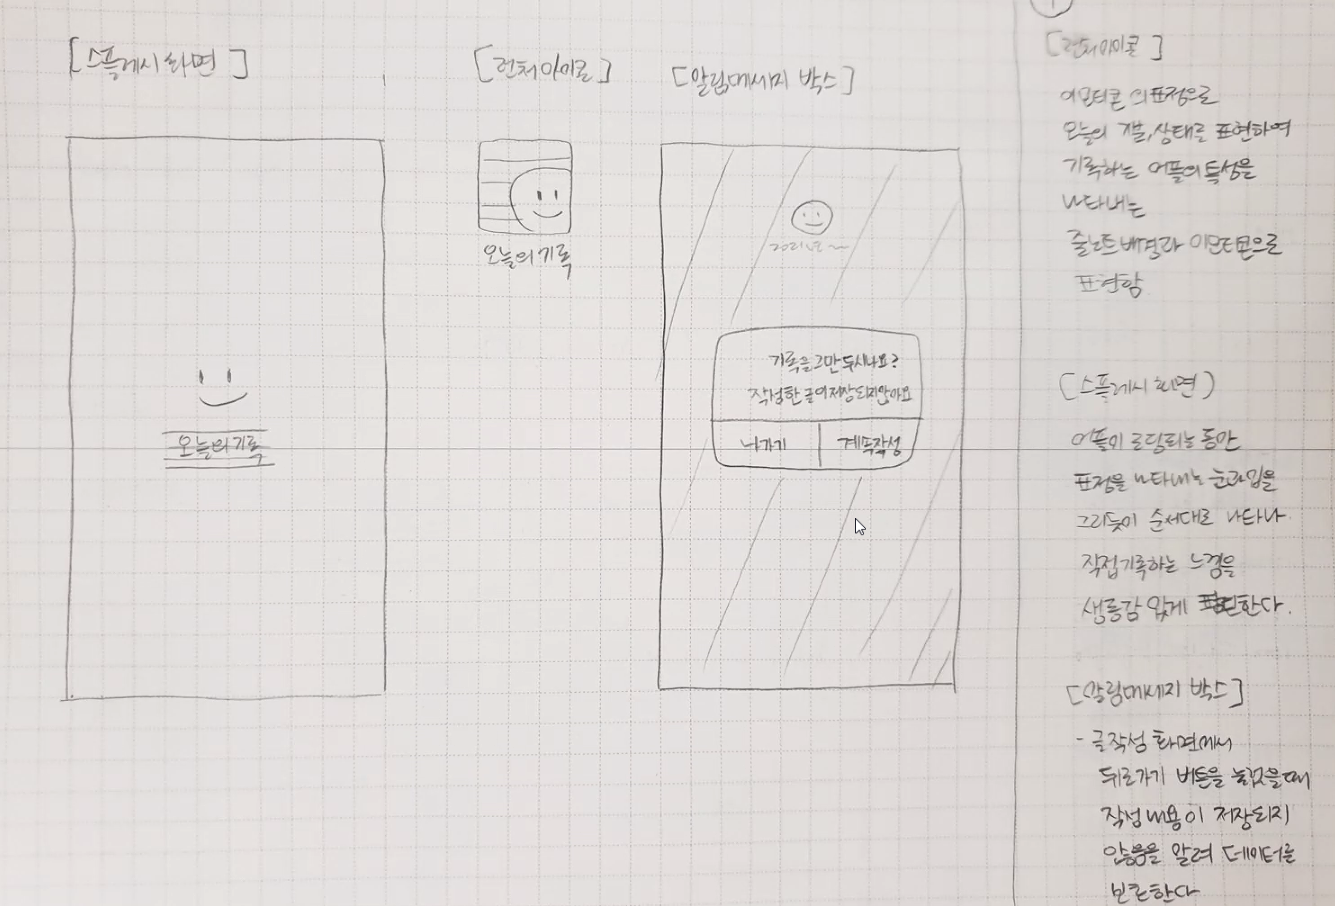 [스플레시 화면]
오늘의기록
[런처아이콘]
오늘의기록
[알림메세지 박스]
2021년~
기록을그만두시나요?
작성한글이저장되지않아요
나가기
계속작성
1
[런처아이콘]
이모티콘의표정으로
오늘의 기분,상태를 표현하여
기록하는 어플의특성을
나타내는
줄노트배경과 이모티콘으로
표현함
[스플레시화면]
어플이 로딩되는 동안
표정을 나타내는 눈과입을
그리듯이 순서대로 나타나
직접기록하는 느낌을
생동감 있게 표현한다.
[알림메세지 박스]
- 글작성 화면에서
뒤로가기 버튼을 눌렀을때
작성내용이 저장되지
않음을 알려 데이터를
보존한다